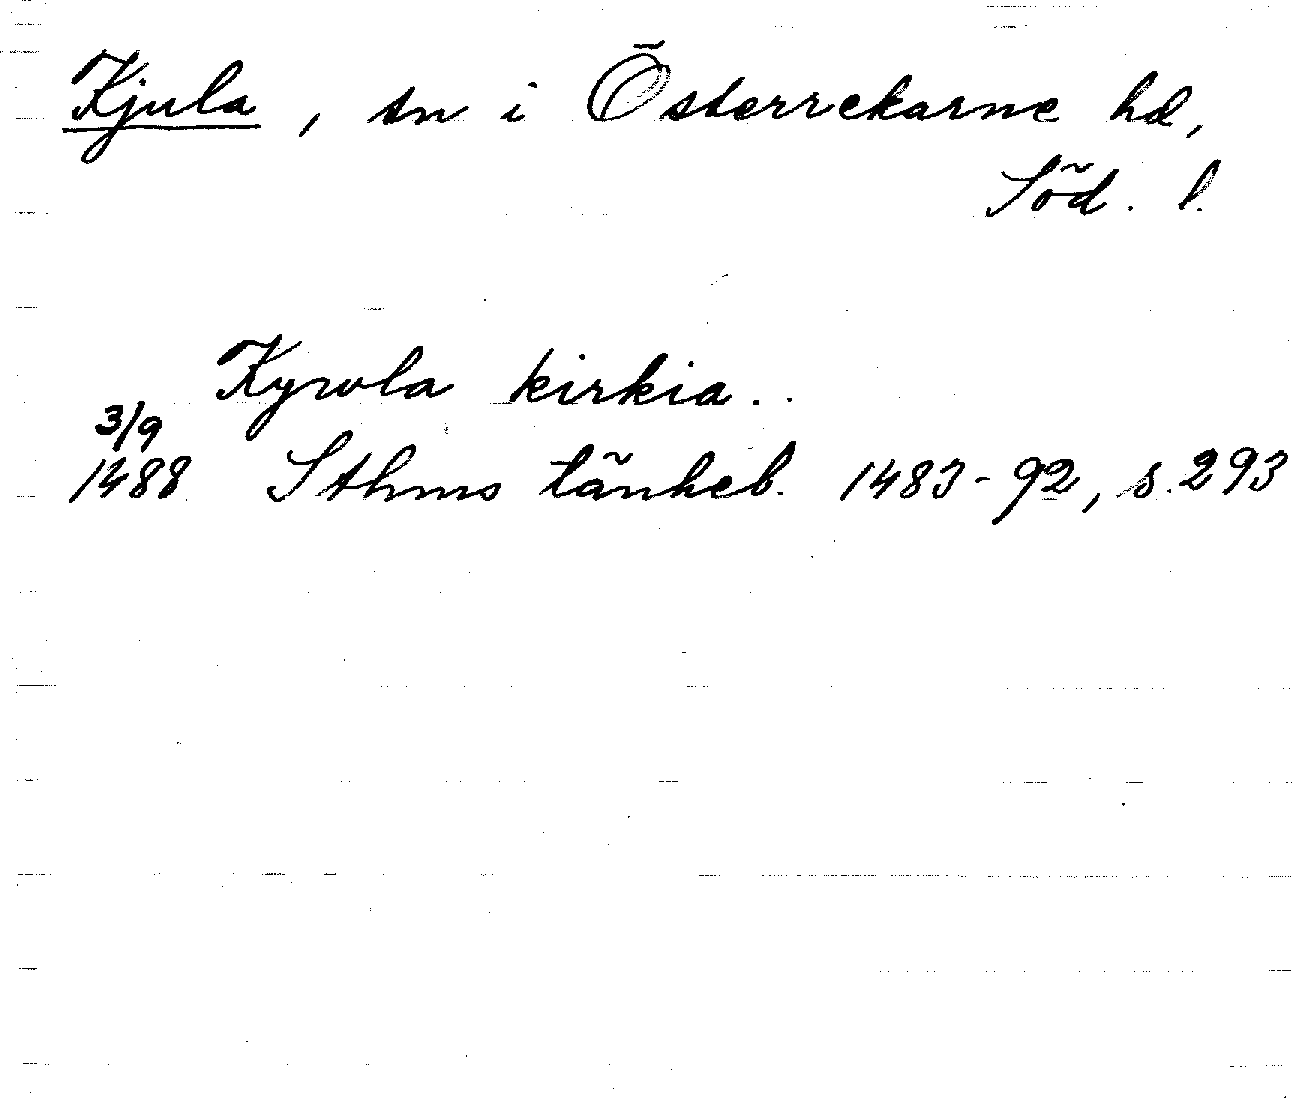 Kjula, sn i Österrekarne hd,
Söd. l.
Kyrola kirkia..
3/9
1488 Sthms tänkeb. 1483-92, s. 293